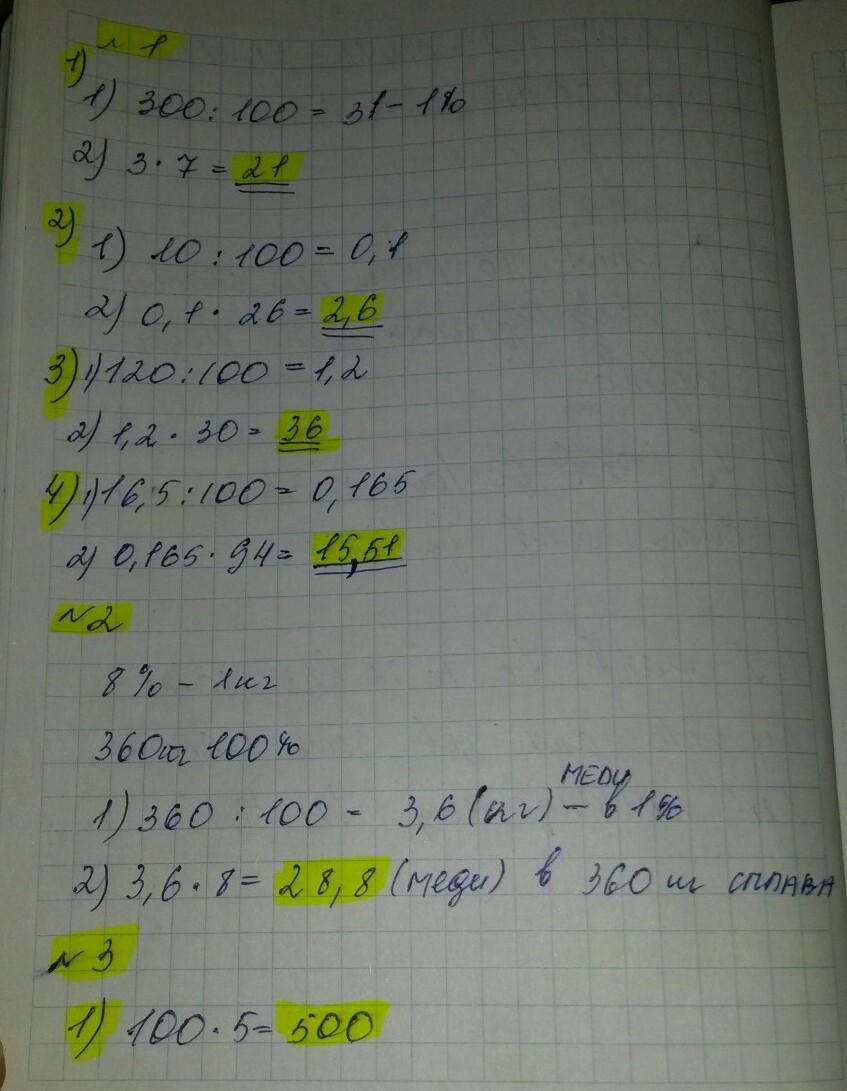 № 1
1)
1) 300 : 100 = 3 - 1%
2) 3 · 7 = 21
2)
1) 10 : 100 = 0,1
2) 0,1 · 26 = 2,6
3) 1) 120 : 100 = 1,2
2) 1,2 · 30 = 36
4) 1) 16,5 : 100 = 0,165
2) 0,165 · 94 = 15,51
№ 2
8% - 1 кг
360 кг 100%
меди
1) 360 : 100 = 3,6 (кг) - в 1%
2) 3,6 · 8 = 28,8 (меди) в 360 кг сплава
№ 3
1) 100 · 5 = 500